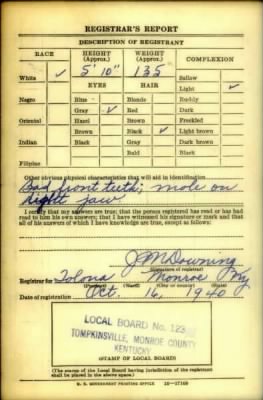 REGISTRAR'S REPORT
DESCRIPTION OF REGISTRANT
RACE HEIGHT (Approx.) WEIGHT (Approx.) COMPLEXION
White ✓ 5' 10" 135 Sallow
EYES HAIR Light ✓
Negro Blue Blonde Ruddy
Gray ✓ Red Dark
Oriental Hazel Brown Freckled
Brown Black ✓ Light brown
Indian Black Gray Dark brown
Bald Black
Filipino
Other obvious physical characteristics that will aid in identification
Bad front teeth; mole on
right jaw
I certify that my answers are true; that the person registered has read or has had
read to him his own answers; that I have witnessed his signature or mark and that
all of his answers of which I have knowledge are true, except as follows:
J M Downing
(Signature of registrar)
Registrar for Monroe Ky
(Precinct) (Ward) (City or county) (State)
Date of registration Oct. 16, 1940
LOCAL BOARD No. 123
TOMPKINSVILLE, MONROE COUNTY
KENTUCKY
(STAMP OF LOCAL BOARD)
(The stamp of the Local Board having jurisdiction of the registrant
shall be placed in the above space.)
U. S. GOVERNMENT PRINTING OFFICE 16-17105